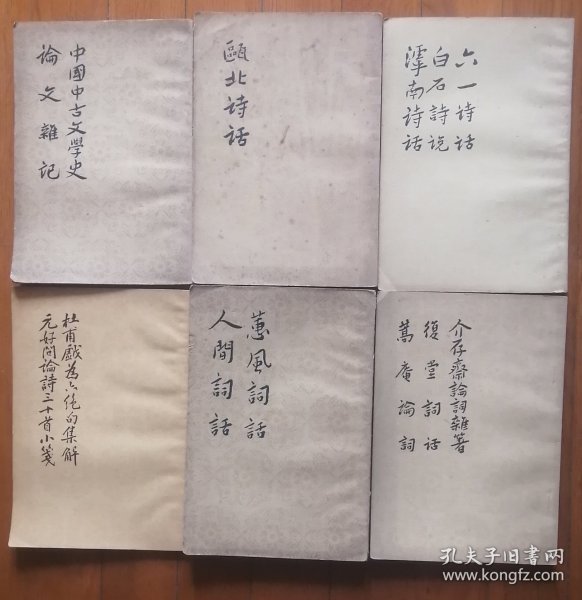 中國中古文學史
論文雜記
甌北诗话
六一诗话
白石詩说
滹南诗话
杜甫戲為六絕句集解
元好问論詩三十首小箋
蕙風詞話
人間詞話
介存齋論詞雜著
復堂詞话
蒿庵論詞
孔夫子旧书网
www.kongfz.com